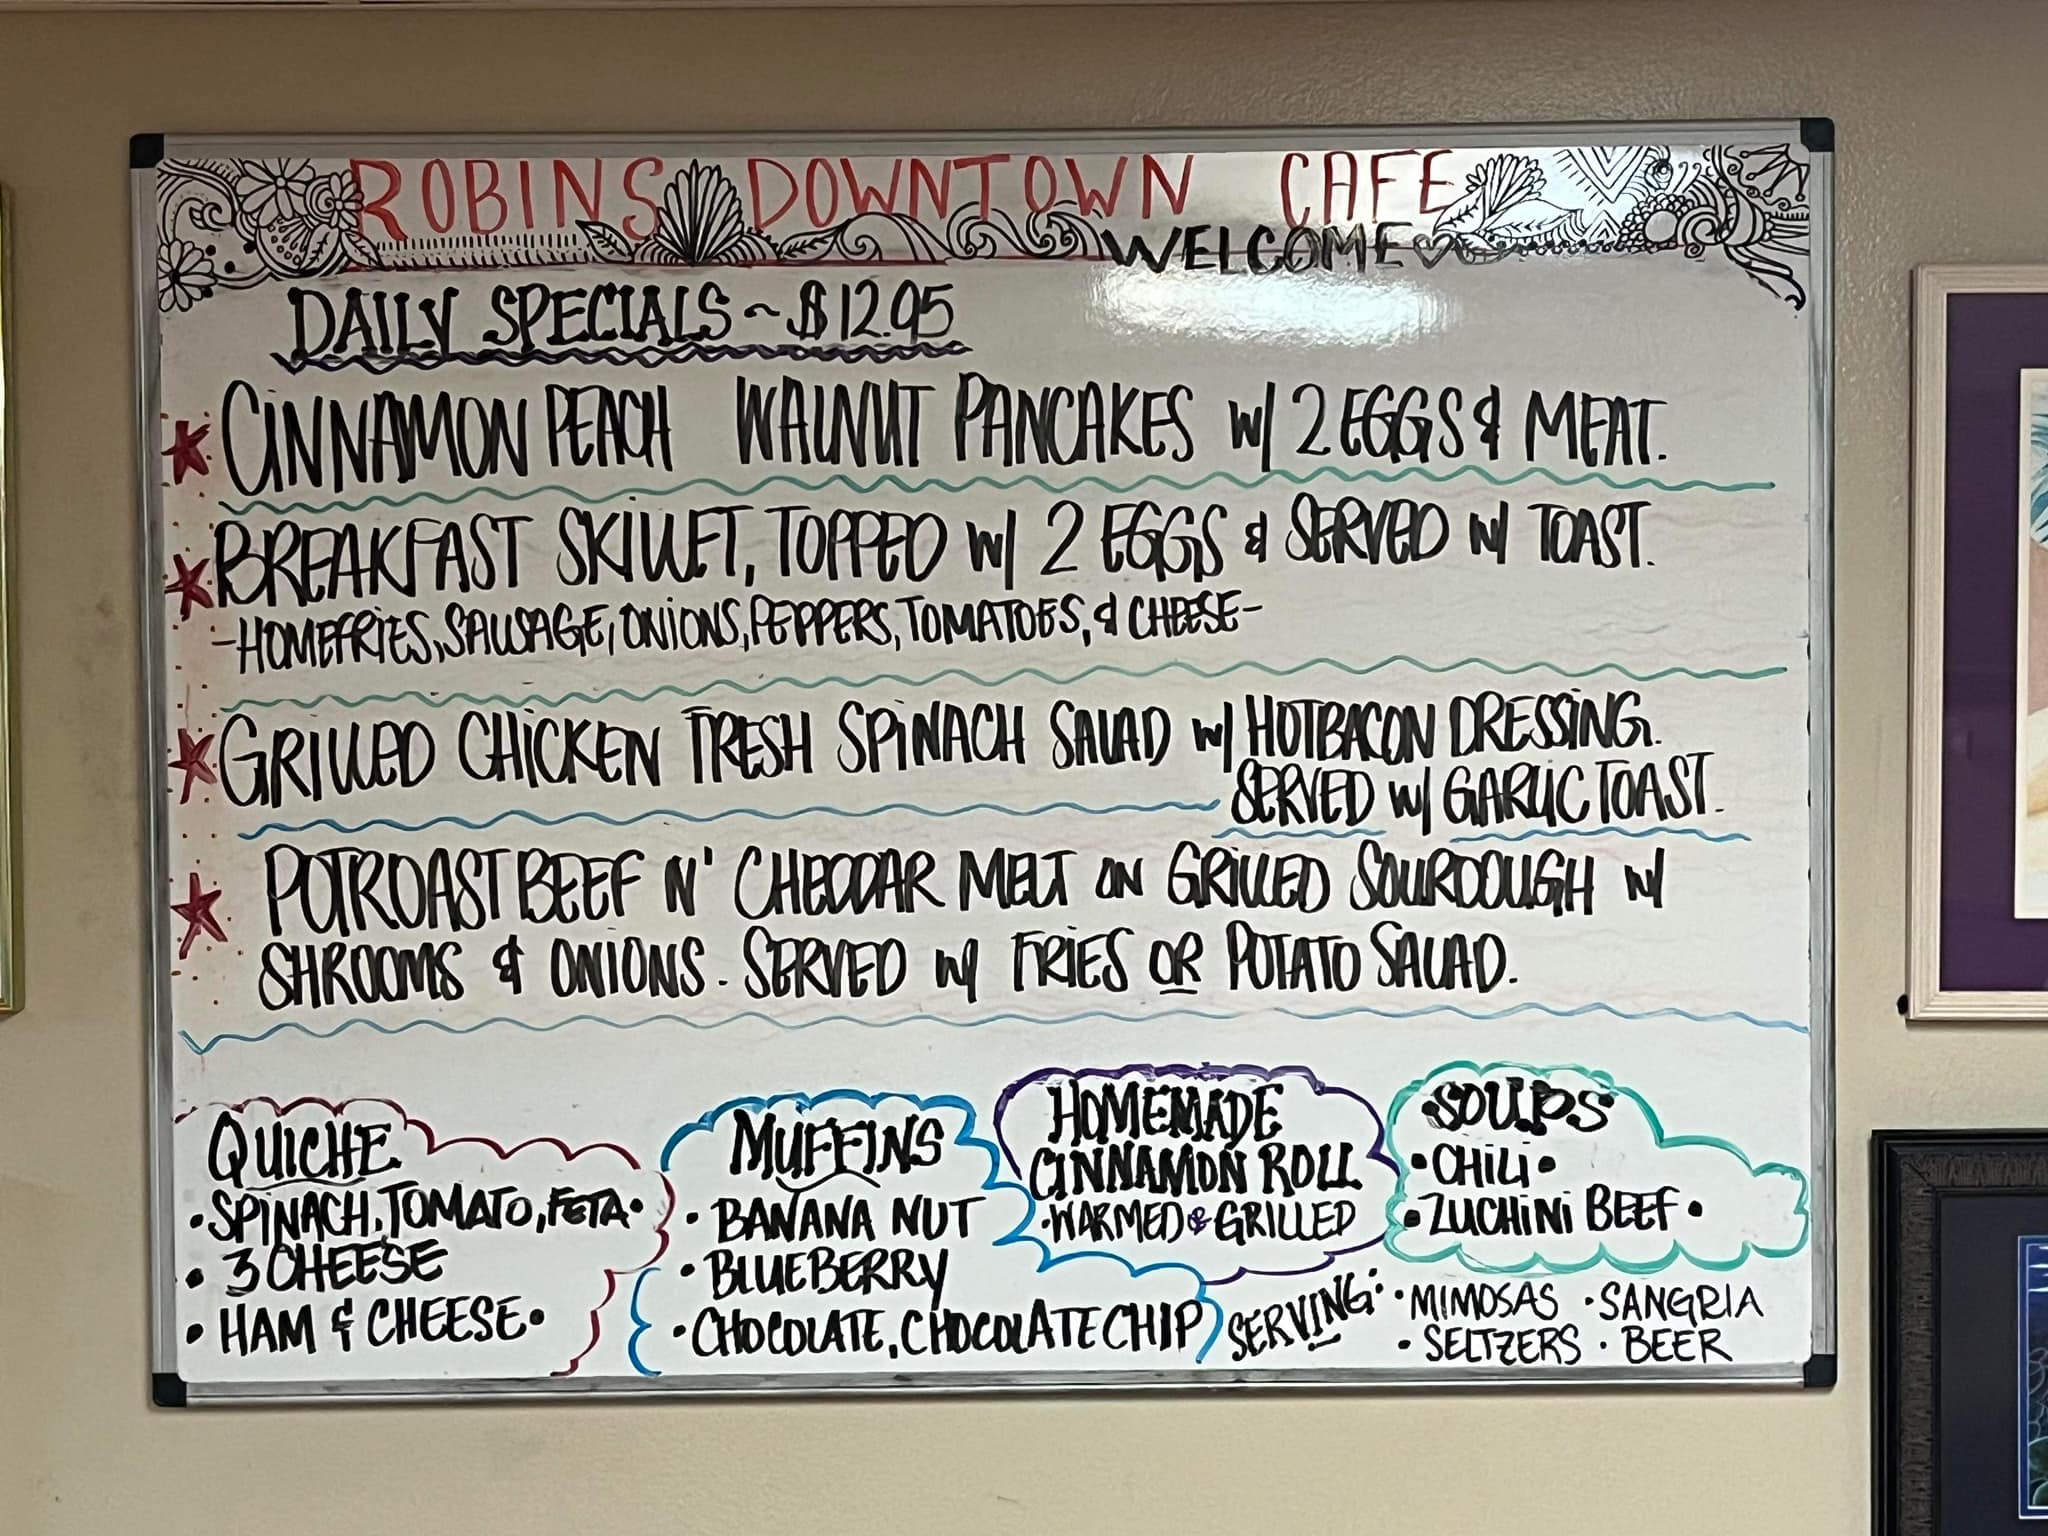 ROBINS DOWNTOWN CAFE
WELCOME
DAILY SPECIALS ~ $12.95
CINNAMON PEACH WALNUT PANCAKES W/ 2 EGGS & MEAT.
BREAKFAST SKILLET, TOPPED W/ 2 EGGS & SERVED W/ TOAST.
-HOMEFRIES, SAUSAGE, ONIONS, PEPPERS, TOMATOES, & CHEESE-
GRILLED CHICKEN FRESH SPINACH SALAD W/ HOT BACON DRESSING.
SERVED W/ GARLIC TOAST.
POTROAST BEEF N' CHEDDAR MELT ON GRILLED SOURDOUGH W/
SHROOMS & ONIONS. SERVED W/ FRIES OR POTATO SALAD.
QUICHE
• SPINACH, TOMATO, FETA •
• 3 CHEESE
• HAM & CHEESE •
MUFFINS
• BANANA NUT
• BLUEBERRY
• CHOCOLATE, CHOCOLATE CHIP
HOMEMADE
CINNAMON ROLL
• WARMED & GRILLED
SOUPS
• CHILI •
• ZUCHINI BEEF •
SERVING:
• MIMOSAS • SANGRIA
• SELTZERS • BEER